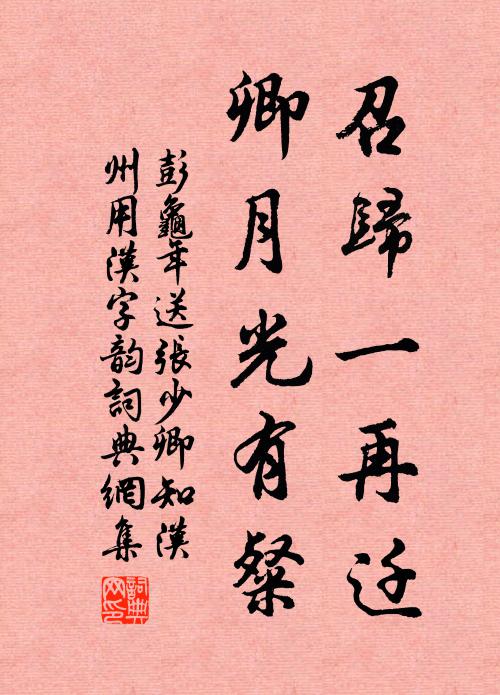 召歸一再迁
卿月光有粲
彭龜年送張少卿知漢
州用漢字韵詞典網集
詞典网印